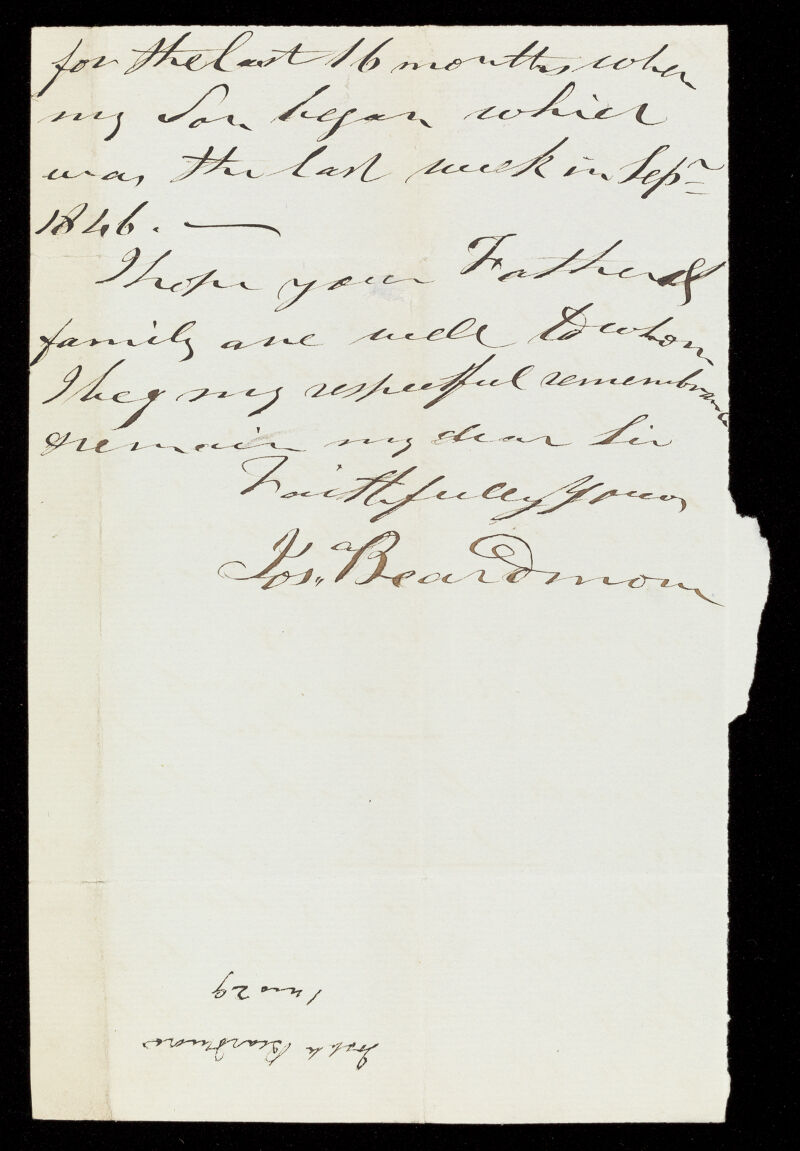 for the last 16 months when
my Son began which
was the last week in Sepr
1846. —
I hope your Father &
family are well to whom
I beg my respectful remembrance
& remain my dear Sir
Faithfully Yours
Josa Beardmore
Beardmore
29